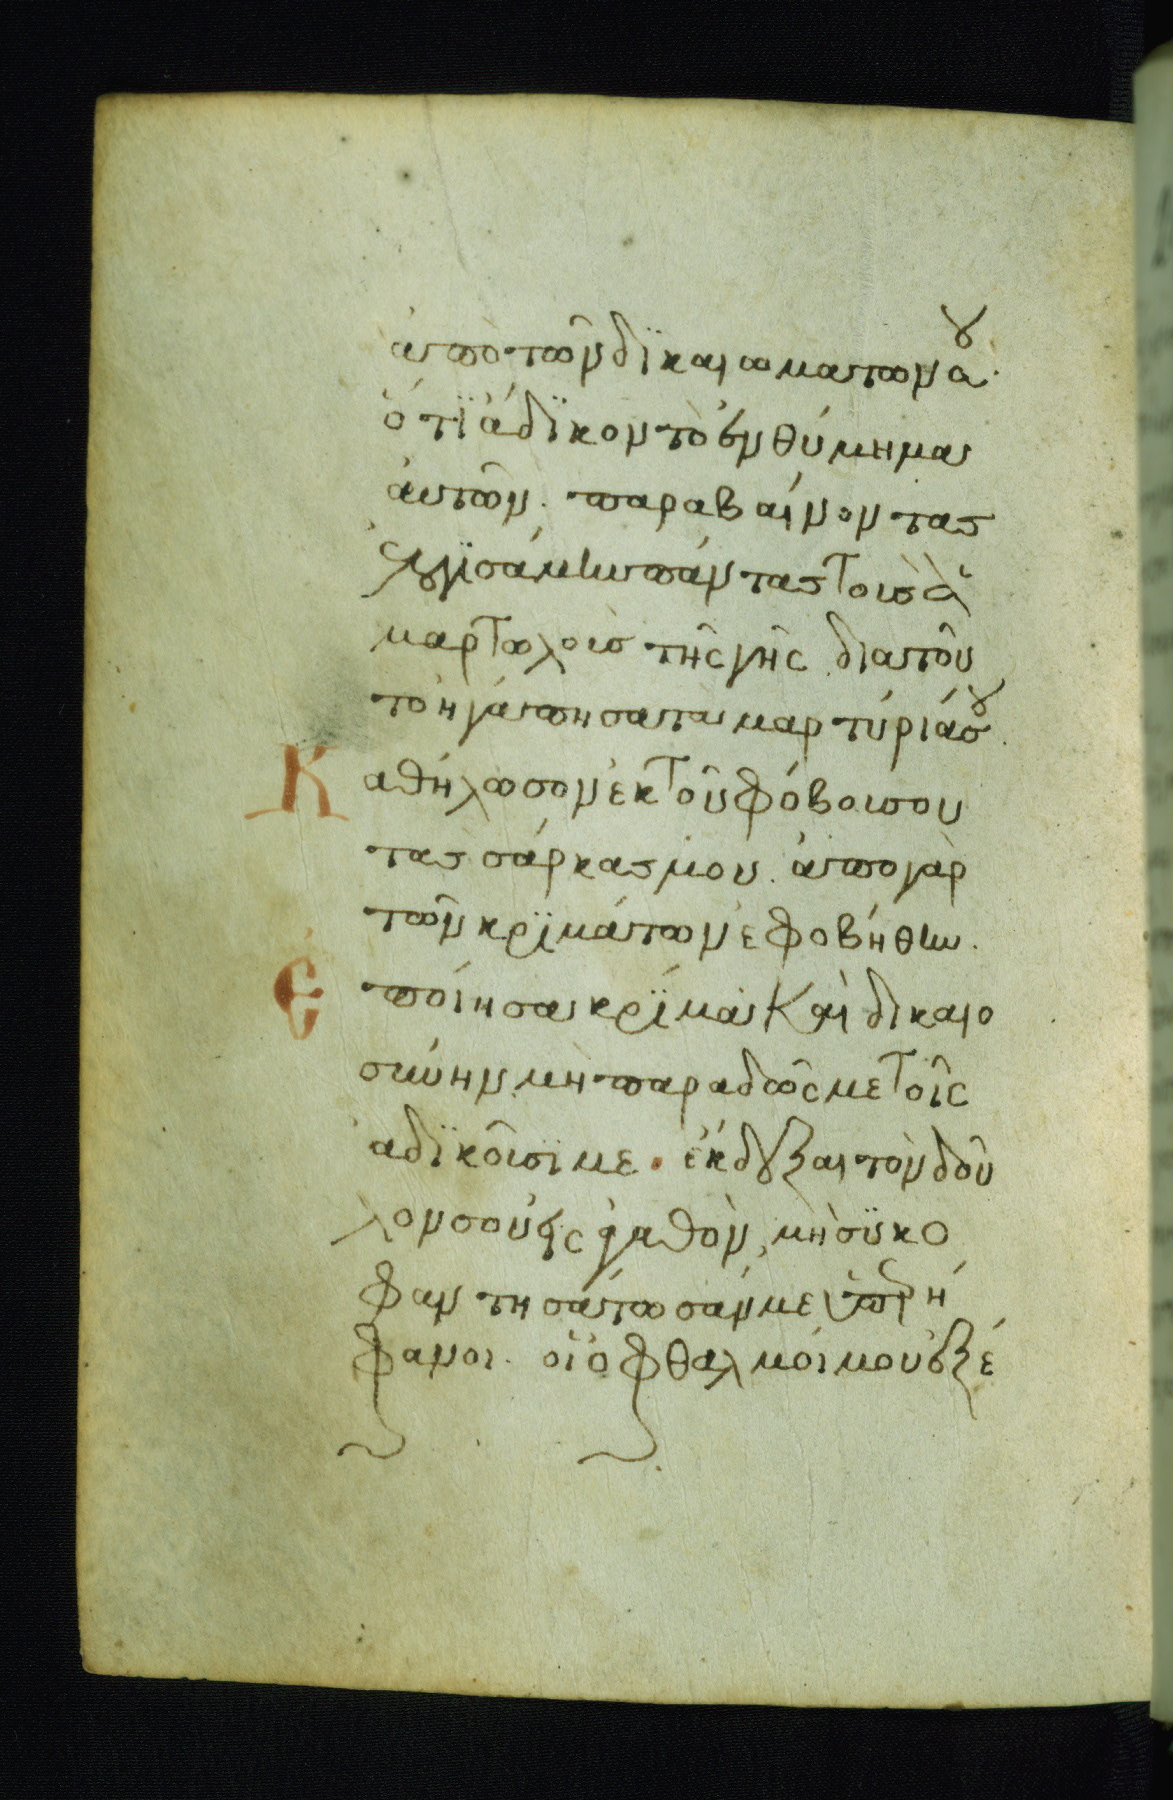 ἀπὸ τῶν δϊκαιωματων σου·
ὅτϊ ἄδϊκον τὸ ἐνθύμημα
ἀυτῶν. παραβαίνοντας
ἐλογϊσάμην πάντας τοὺσ ἁ
μαρτωλοὺσ τῆς γῆς. δια τοῦ
το ἠγάπησα τα μαρτύριά σου.
Καθήλωσον ἐκ τοῦ φόβου σου
τασ σάρκασ μου. ἀπο γὰρ
τῶν κρϊμάτων ἐφοβήθην.
Ἐποίησα κρϊμα Και δικαιο
σύνην. μὴ παραδῶς με τοῖς
αδϊκοῦσϊ με. ἔκδεξαι τὸν δοῦ
λον σου εἰς ἀγαθὸν, μὴ σϋκο
φαντησάτωσάν με ὑπερή
φανοι. οἱ ὀφθαλμόι μου ἐξέ